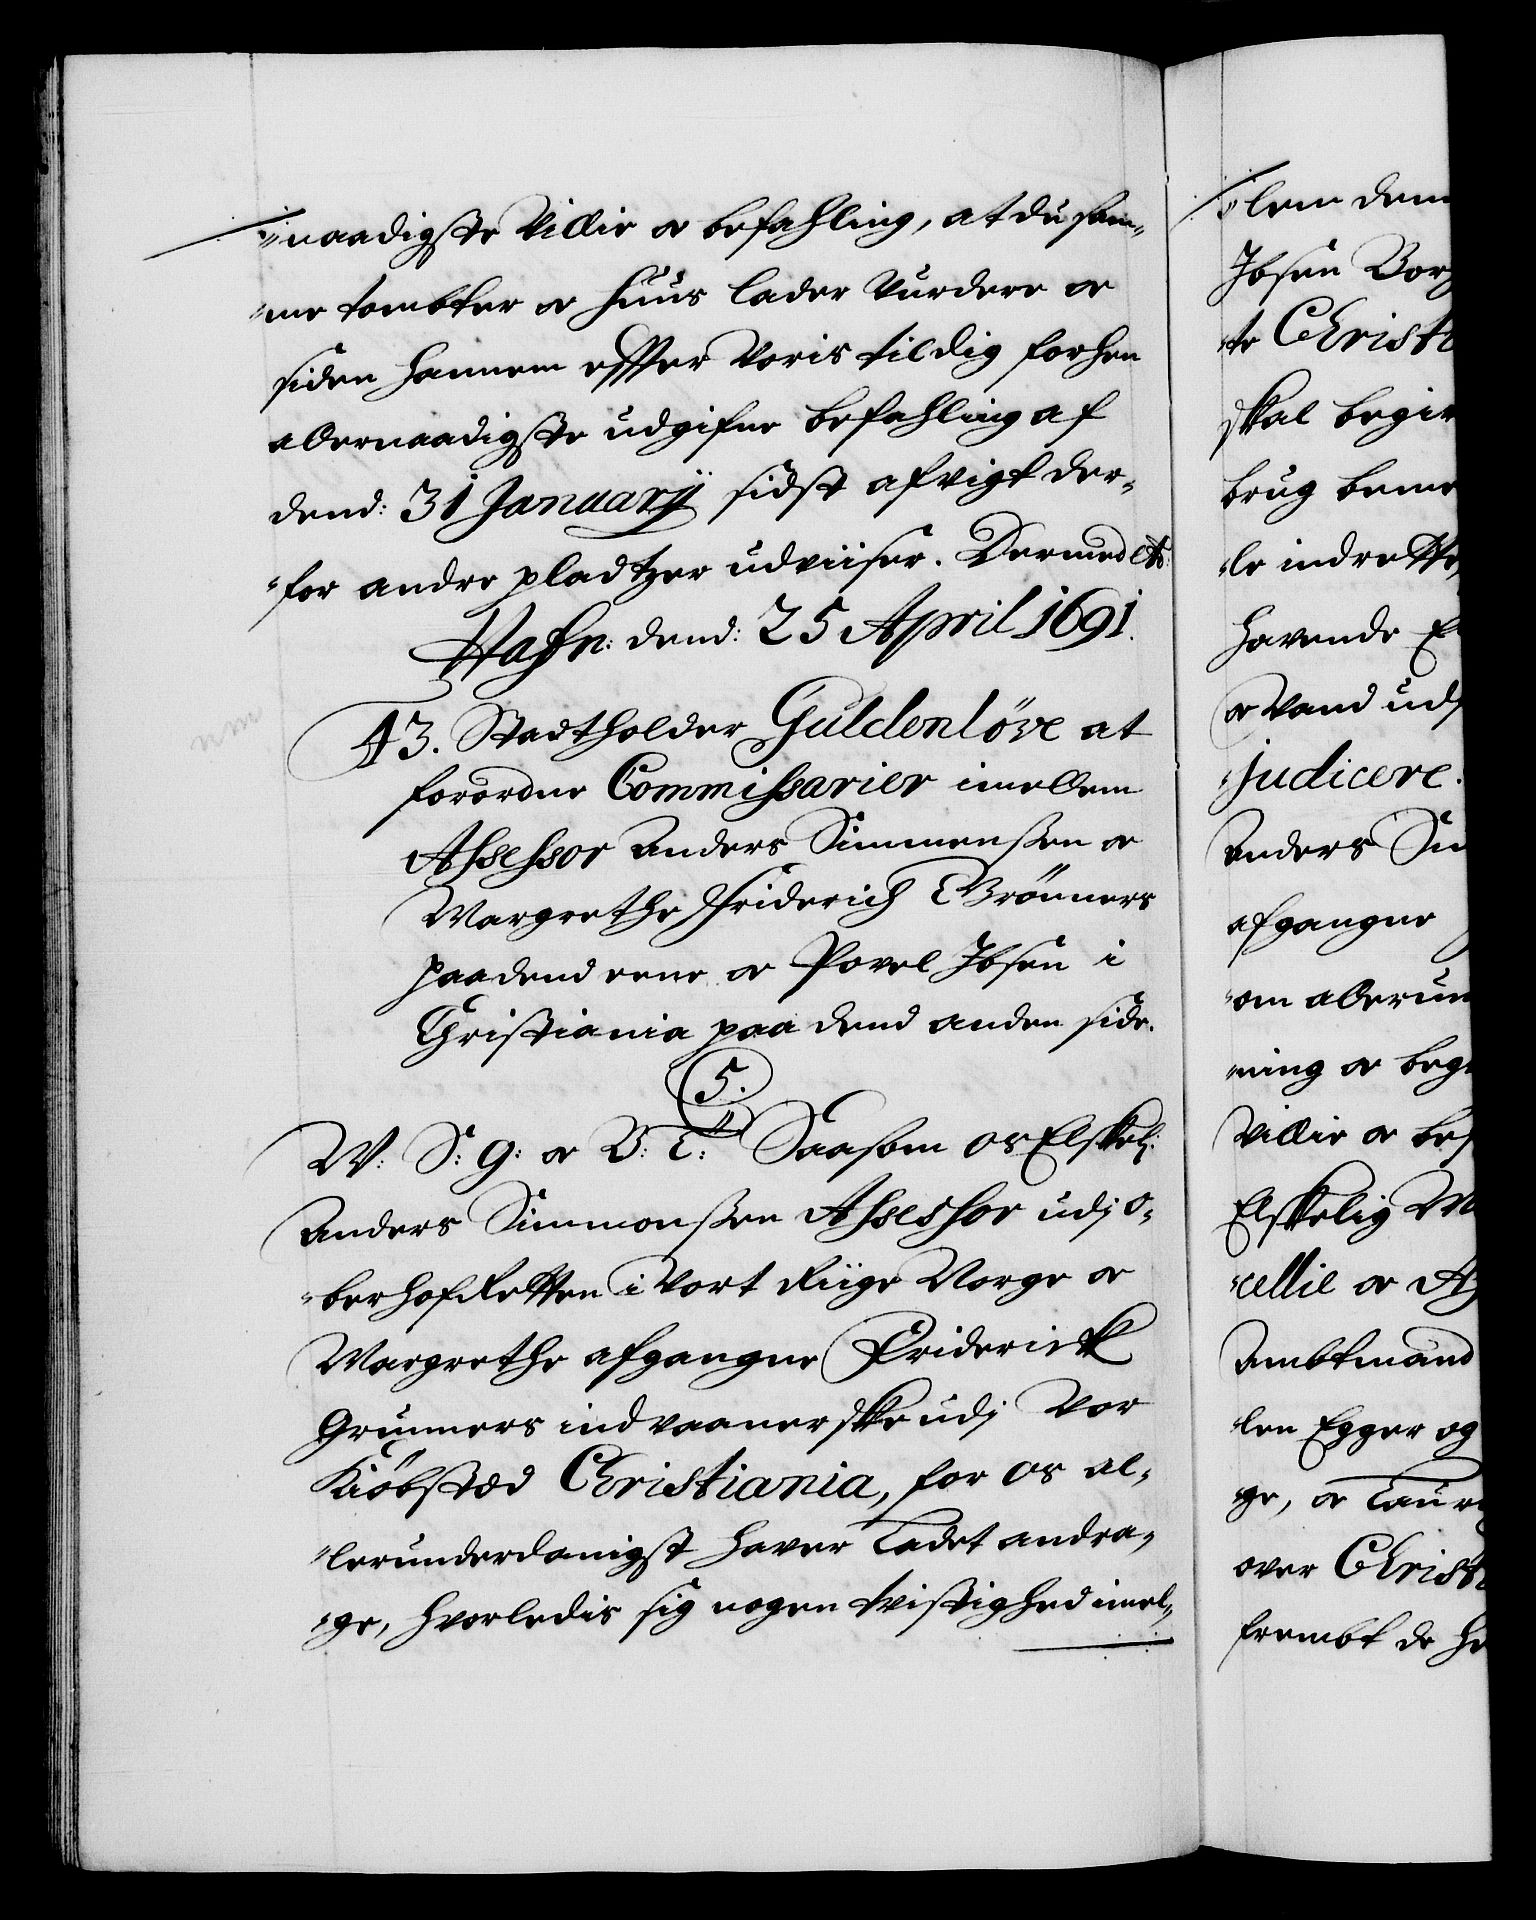 naadigste Villie og befahling, at du sam-
me tomter og huus lader Vurdere og
siden hannem effter Voris til dig forhen
allernaadigste udgifne befahling af
dend: 31 January sidst afvigt der-
for andre pladtzer udviiser. Dermed etc:
Hafn: dend: 25 April 1691.
43. Stadtholder Guldenlöve at
forordne Commissarier imellem
Assessor Anders Simmensen og
Margrethe Friderich Grönners
paa dend eene og Povel Ibsen i
Christiania paa dend anden side.
5.
W: S: G: og V: T: Saasom os Elskel:
Anders Simmonsen Assessor udj O-
berhofRetten i Vort Riige Norge og
Margrethe afgangne Friderick
Grunners indvaanerske udj Vor
Kiöbsted Christiania, for os al-
lerunderdanigst haver Ladet andra-
ge, hvorledis sig nogen tvistighed imel-
lem dem
Ibsen Borg
te Christi
skal begi
brug beme
le indrette
havende
og Vand udj
judicere
Anders Sim
afgangne
om allerun
ning og beg
Villie og bef
Elskelig
cellie og
Ambtmand
len Egger og
ge, og Laur
over Christ
frembt de